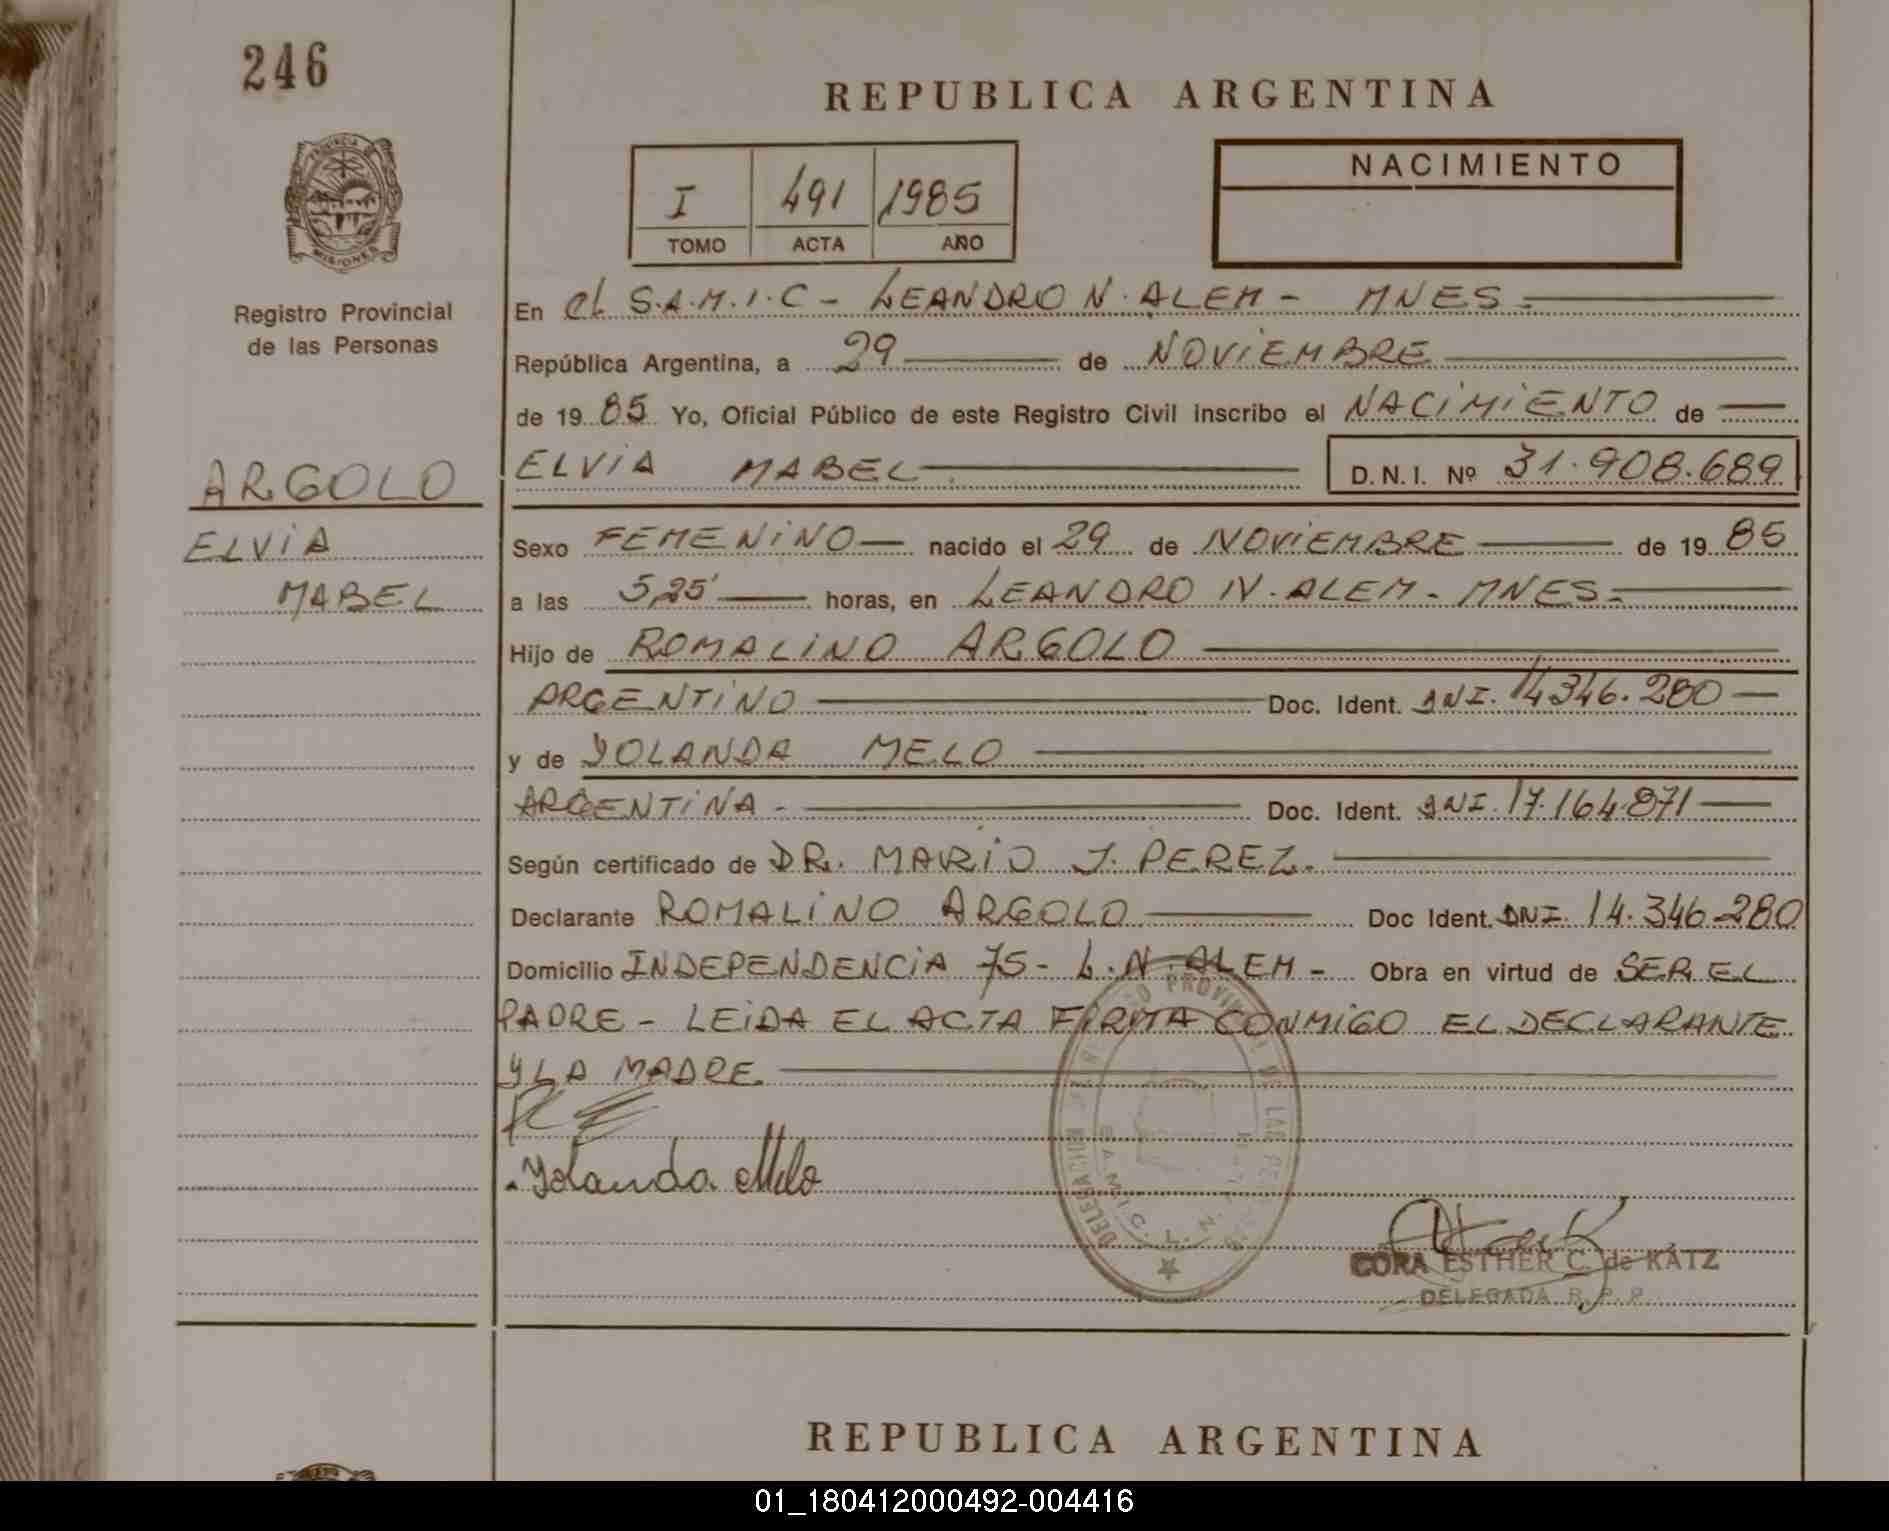 246
REPUBLICA ARGENTINA
PROVINCIA DE
MISIONES
Registro Provincial
de las Personas
I 491 1985
TOMO ACTA AÑO
NACIMIENTO
En el S.A.M.I.C - LEANDRO N. ALEM - MNES -
República Argentina, a 29 de NOViEMBRE
de 19 85 Yo, Oficial Público de este Registro Civil inscribo el NACiMiENTO de
ELViA MABEL D.N.I. Nº 31.908.689
ARGOLO
ELViA
MABEL
Sexo FEMENiNO nacido el 29 de NOViEMBRE de 19 85
a las 5,25' horas, en LEANDRO N. ALEM - MNES -
Hijo de ROMALiNO ARGOLO
ARGENTiNO Doc. Ident. DNI. 14346.280
y de YOLANDA MELO
ARGENTiNA - Doc. Ident. DNI. 17.164.871
Según certificado de DR. MARiO J. PEREZ.
Declarante ROMALiNO ARGOLO Doc Ident. DNI. 14.346.280
Domicilio INDEPENDENCiA 75 - L.N. ALEM - Obra en virtud de SER EL
PADRE - LEiDA EL ACTA FiRMA CONMiGO EL DECLARANTE
Y LA MADRE
Yolanda Melo
S.A.M.I.C. L.N.
CORA ESTHER C. de KATZ
DELEGADA R.P.P.
REPUBLICA ARGENTINA
01_180412000492-004416